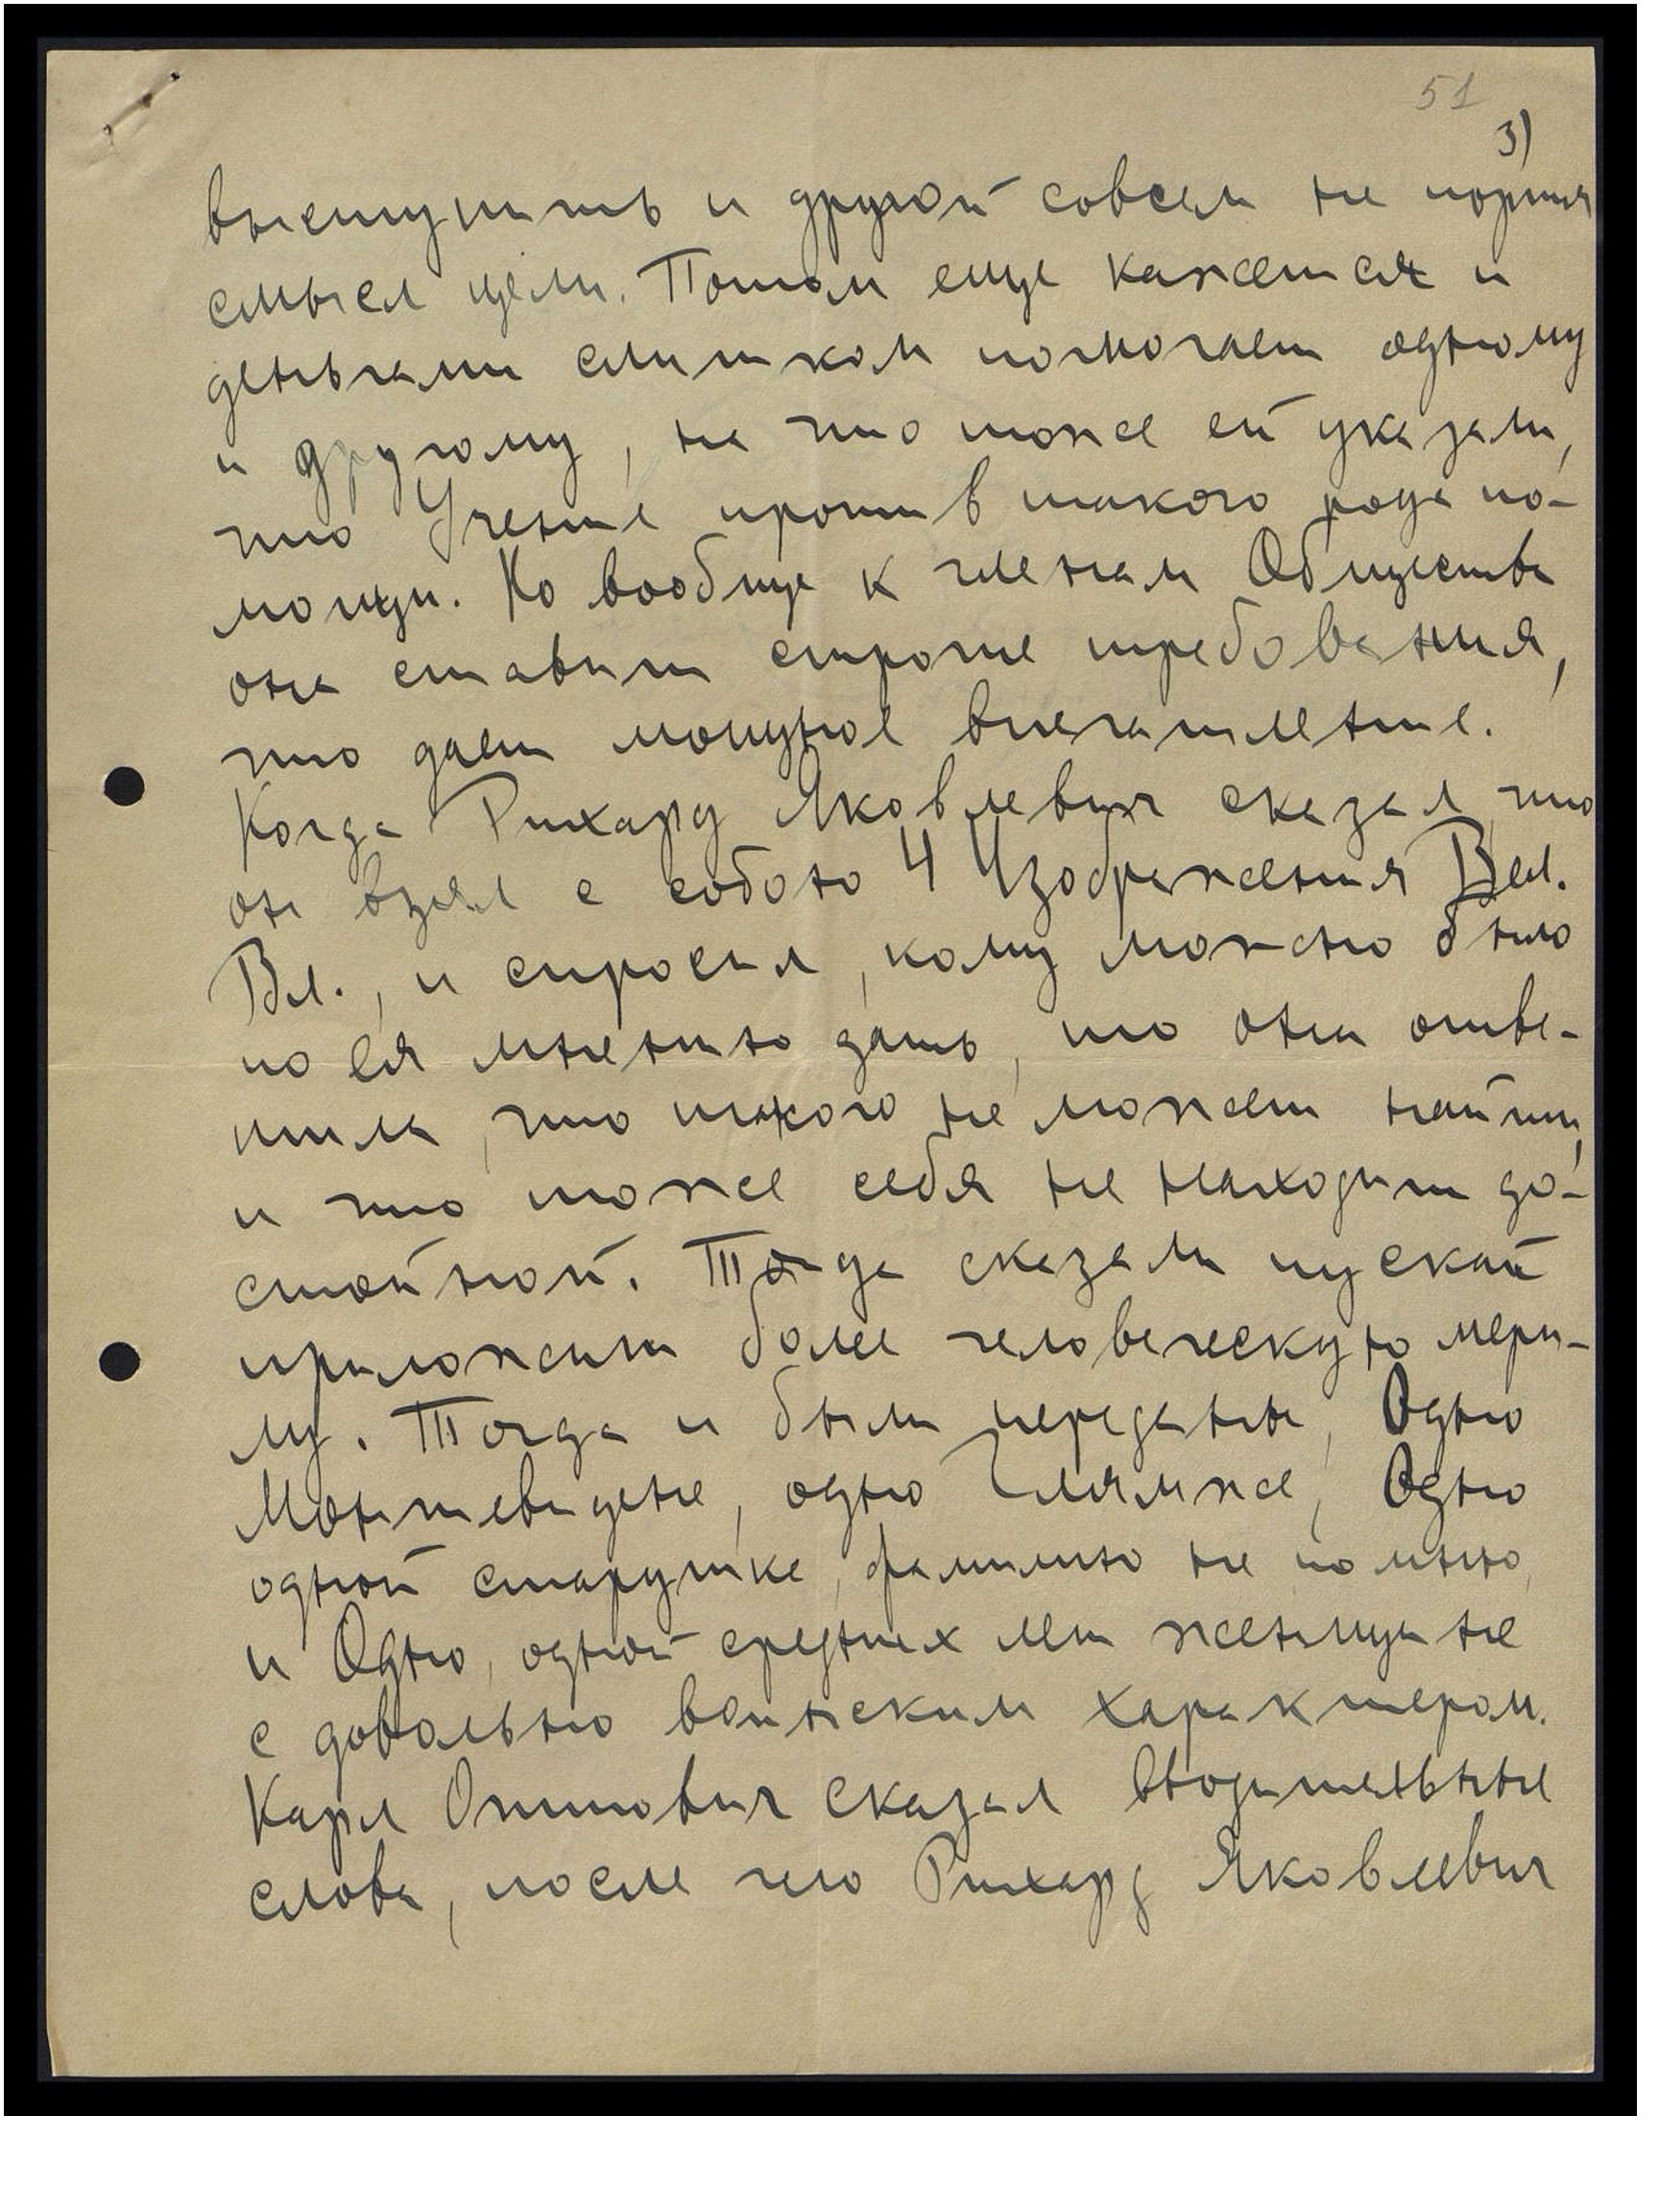 51
3)
выступить и другой совсем не портя
смысл цели. Потом еще кажется и
деньгами слишком помогает одному
и другому, на что тоже ей указали,
что Учение против такого рода по-
мощи. Но вообще к членам Общества
она ставит строгие требования,
что дает мощное впечатление.
Когда Рихард Яковлевич сказал, что
он взял с собою 4 Изображения Вел.
Вл., и спросил, кому можно было
по ея мнению дать, то она отве-
тила, что такого не может найти,
и что тоже себя не находит до-
стойной. Тогда сказали пускай
приложит более человеческую мери-
лу. Тогда и были переданы, Одно
Монтевидене, одно Глямже, Одно
одной старушке, фамилию не помню,
и Одно, одной средних лет женщине
с довольно воинским характером.
Карл Оттович сказал вводительные
слова, после чего Рихард Яковлевич